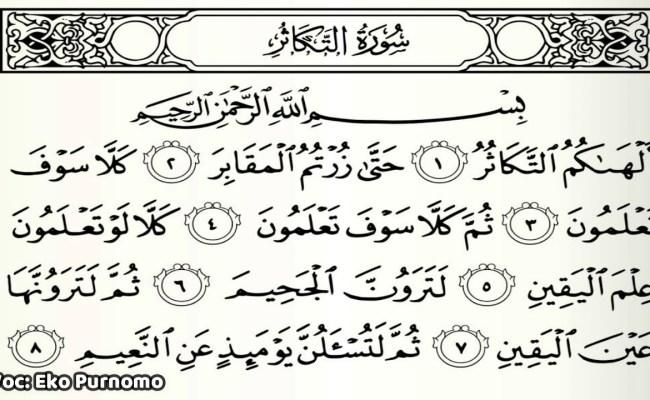 سُورَةُ التَّكَاثُرِ
بِسْمِ اللَّهِ الرَّحْمَٰنِ الرَّحِيمِ
أَلْهَىٰكُمُ التَّكَاثُرُ ١ حَتَّىٰ زُرْتُمُ الْمَقَابِرَ ٢ كَلَّا سَوْفَ
تَعْلَمُونَ ٣ ثُمَّ كَلَّا سَوْفَ تَعْلَمُونَ ٤ كَلَّا لَوْ تَعْلَمُونَ
عِلْمَ الْيَقِينِ ٥ لَتَرَوُنَّ الْجَحِيمَ ٦ ثُمَّ لَتَرَوُنَّهَا
عَيْنَ الْيَقِينِ ٧ ثُمَّ لَتُسْـَٔلُنَّ يَوْمَئِذٍ عَنِ النَّعِيمِ ٨
Foc: Eko Purnomo